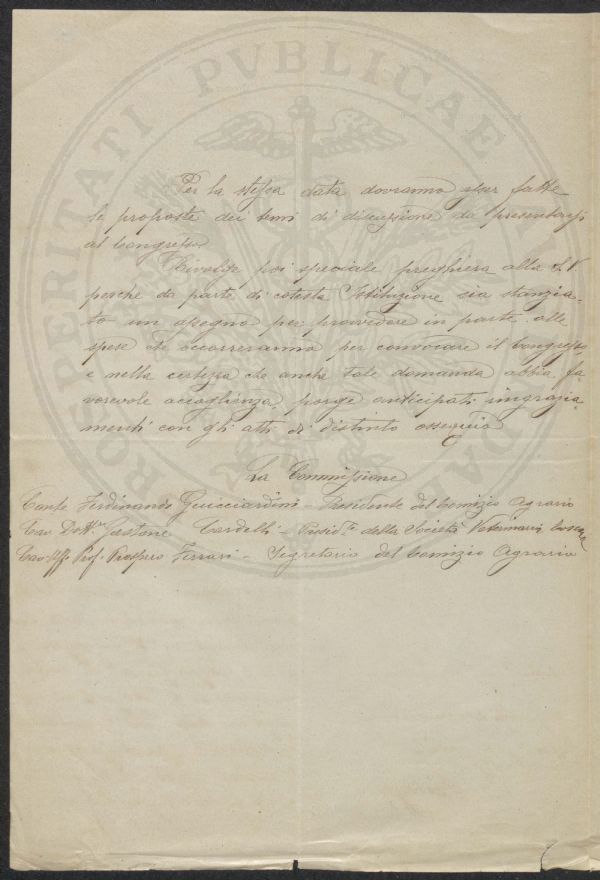 PROSPERITATI PVBLICAE
Per la stessa data dovranno esser fatte
le proposte dei temi di discussione da presentarsi
al Congresso.
Rivolge poi speciale preghiera alla S. V.
perchè da parte di cotesta Istituzione sia stanzia-
to un assegno per provvedere in parte alle
spese che occorreranno per convocare il Congresso,
e nella certezza che anche tale domanda abbia fa
vorevole accoglienza, porge anticipati ringrazia
menti con gli atti di distinto ossequio
La Commissione
Conte Ferdinando Guicciardini - Presidente del Comizio Agrario
Cav. Dott. Gastone Cardelli - Presid.te della Società Veterinaria Toscana
Cav. Uff. Prof. Prospero Ferrari - Segretario del Comizio Agrario